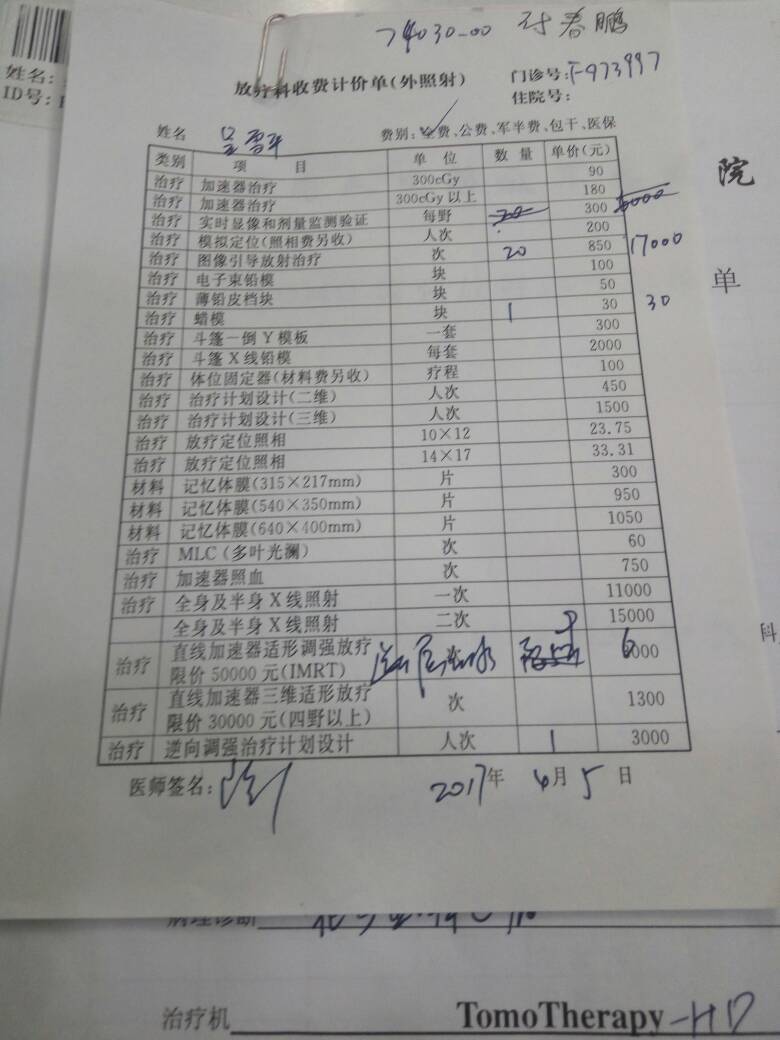 74030-00
姓名:
ID号:
放疗科收费计价单(外照射)
门诊号: F-973997
住院号:
姓名
费别: 全费、公费、军半费、包干、医保
类别 项 目 单 位 数 量 单价(元)
治疗 加速器治疗 300cGy 90
治疗 加速器治疗 300cGy以上 180
治疗 实时显像和剂量监测验证 每野 20 300 6000
治疗 模拟定位(照相费另收) 人次 200
治疗 图像引导放射治疗 次 20 850 17000
治疗 电子束铅模 块 100
治疗 薄铅皮档块 块 50
治疗 蜡模 块 1 30 30
治疗 斗篷一倒Y模板 一套 300
治疗 斗篷X线铅模 每套 2000
治疗 体位固定器(材料费另收) 疗程 100
治疗 治疗计划设计(二维) 人次 450
治疗 治疗计划设计(三维) 人次 1500
治疗 放疗定位照相 10×12 23.75
治疗 放疗定位照相 14×17 33.31
材料 记忆体膜(315×217mm) 片 300
材料 记忆体膜(540×350mm) 片 950
材料 记忆体膜(640×400mm) 片 1050
治疗 MLC(多叶光澜) 次 60
治疗 加速器照血 次 750
治疗 全身及半身X线照射 一次 11000
全身及半身X线照射 二次 15000
治疗 直线加速器适形调强放疗 次 6000
限价50000元(IMRT)
治疗 直线加速器三维适形放疗 次 1300
限价30000元(四野以上)
治疗 逆向调强治疗计划设计 人次 1 3000
医师签名:
2017年 6月 5日
院
单
科
病理诊断
治疗机 TomoTherapy-HD